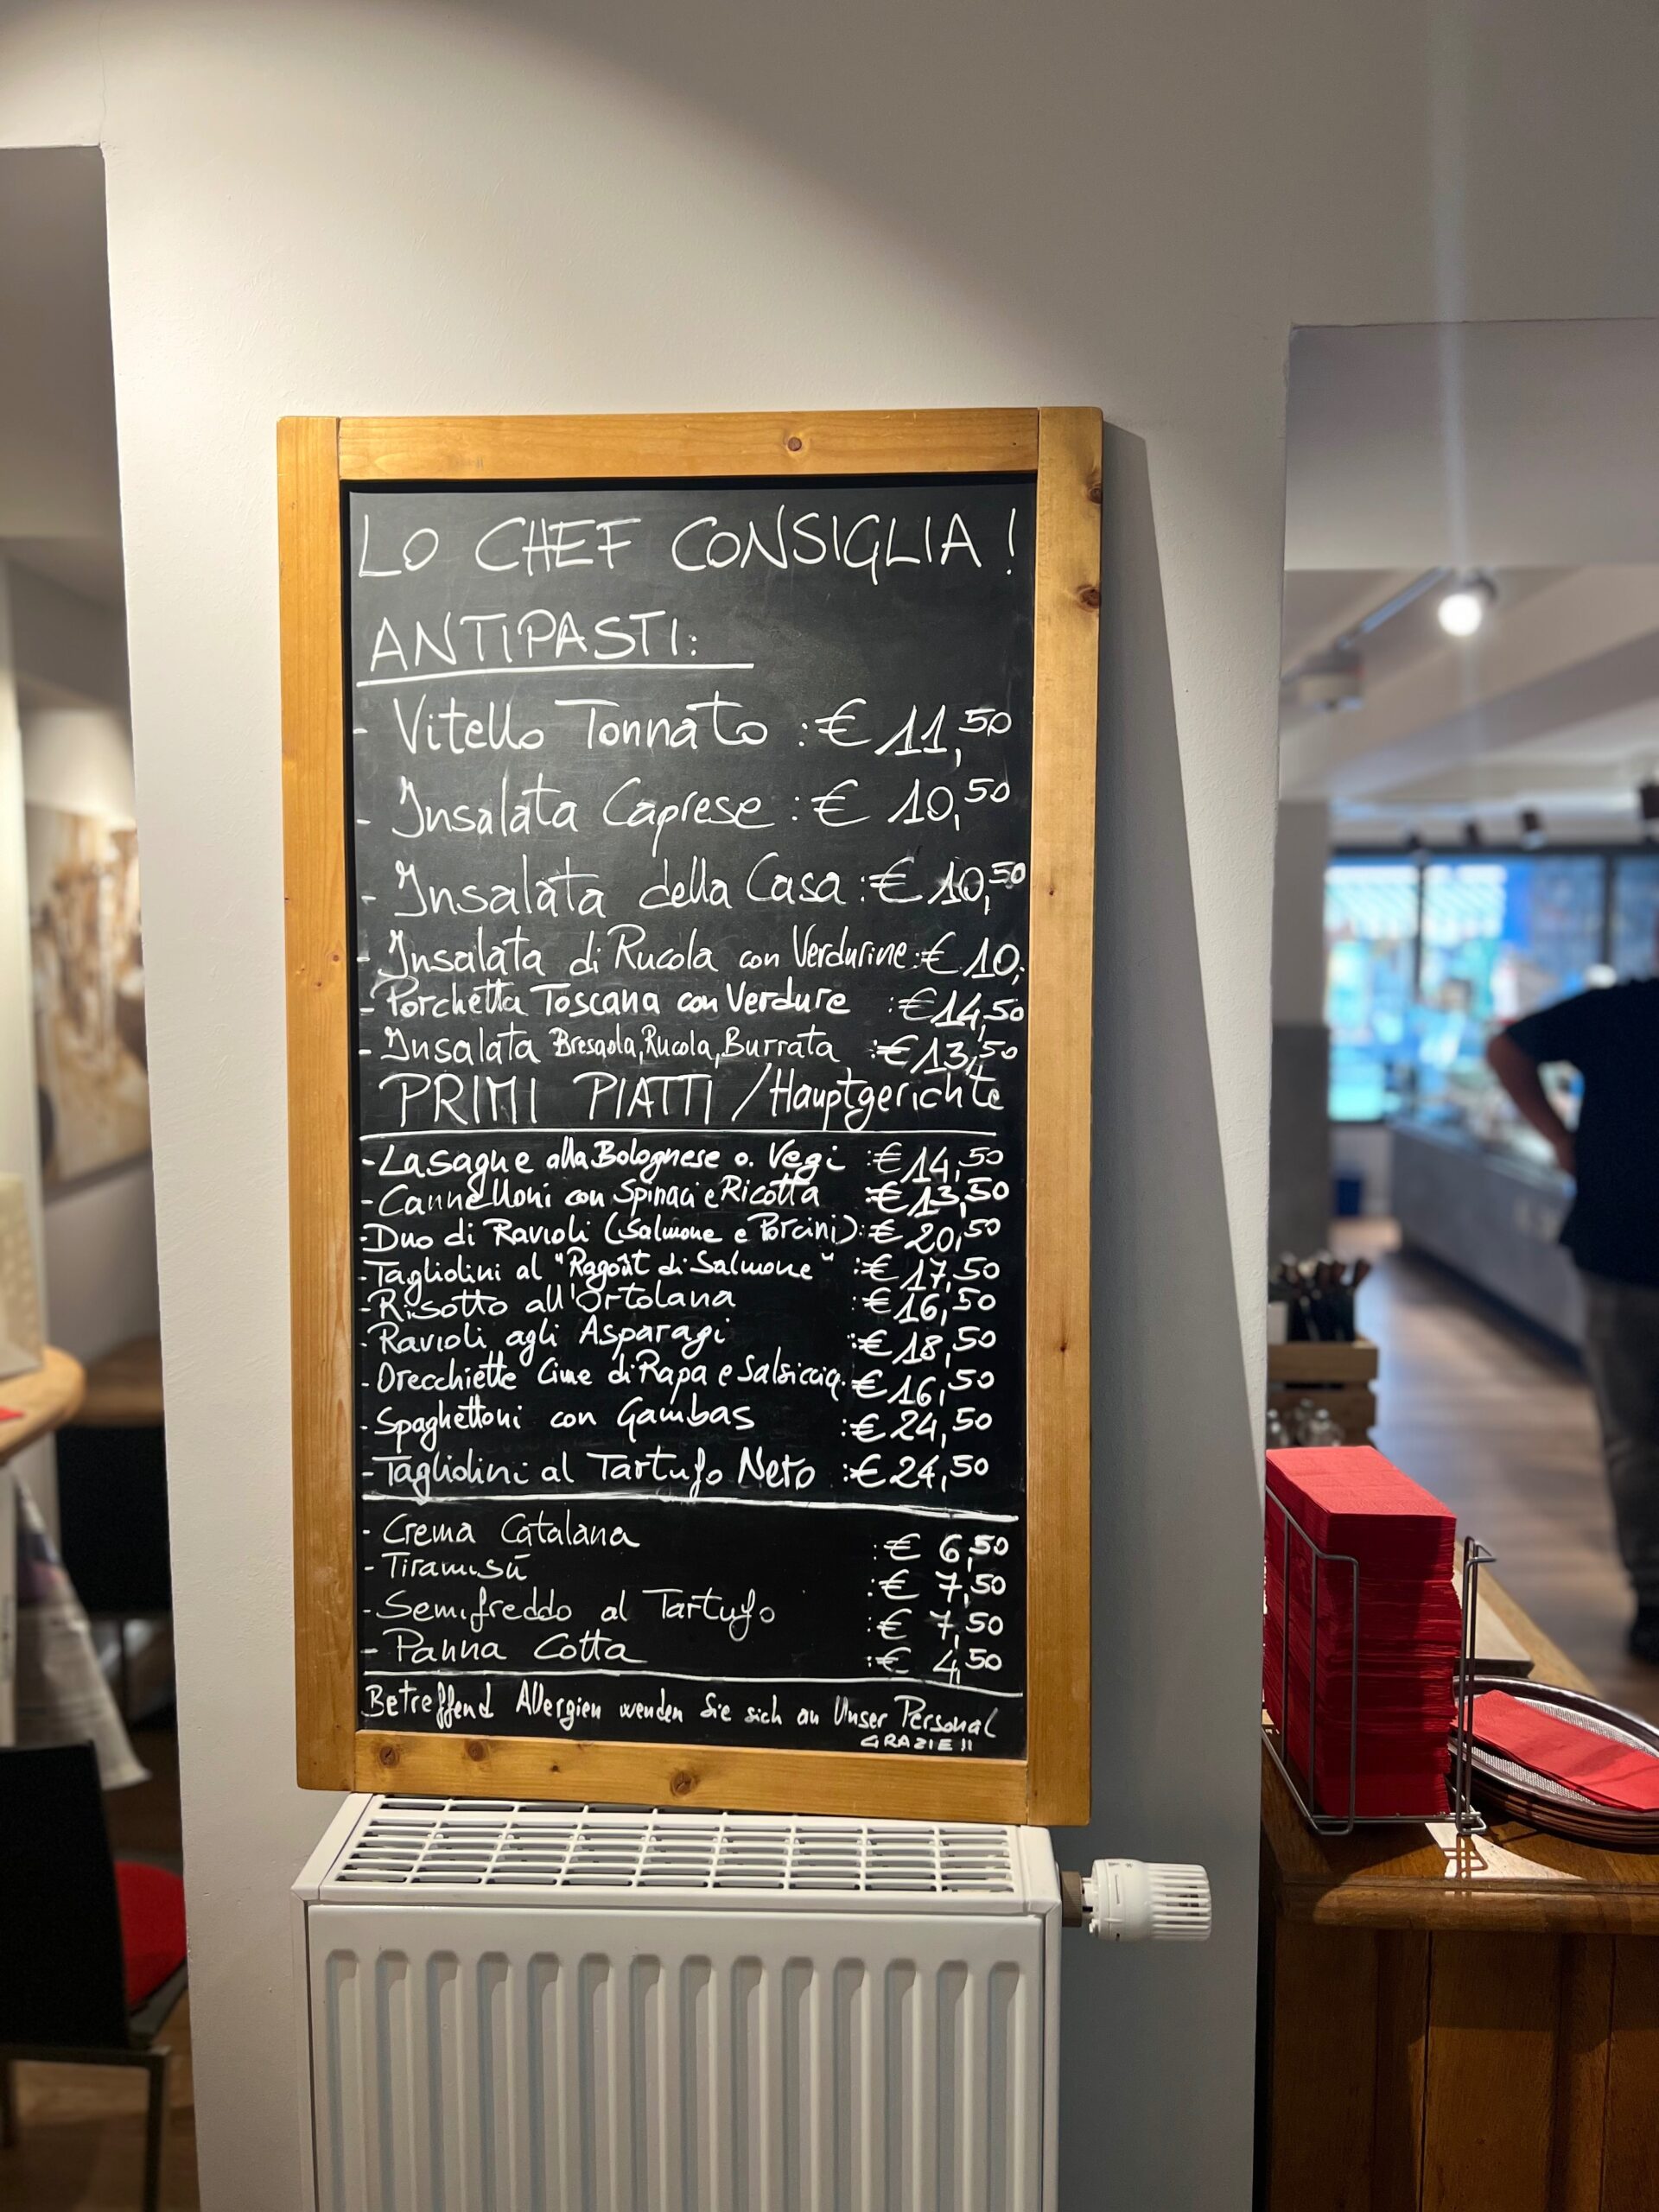 LO CHEF CONSIGLIA!
ANTIPASTI:
- Vitello Tonnato : € 11,50
- Insalata Caprese : € 10,50
- Insalata della Casa : € 10,50
- Insalata di Rucola con Verdurine : € 10,
- Porchetta Toscana con Verdure : € 14,50
- Insalata Bresaola, Rucola, Burrata : € 13,50
PRIMI PIATTI / Hauptgerichte
- Lasagne alla Bolognese o. Vegi : € 14,50
- Cannelloni con Spinaci e Ricotta : € 13,50
- Duo di Ravioli (Salmone e Porcini) : € 20,50
- Tagliolini al "Ragoût di Salmone" : € 17,50
- Risotto all'Ortolana : € 16,50
- Ravioli agli Asparagi : € 18,50
- Orecchiette Cime di Rapa e Salsiccia : € 16,50
- Spaghettoni con Gambas : € 24,50
- Tagliolini al Tartufo Nero : € 24,50
- Crema Catalana : € 6,50
- Tiramisù : € 7,50
- Semifreddo al Tartufo : € 7,50
- Panna Cotta : € 4,50
Betreffend Allergien wenden Sie sich an Unser Personal
GRAZIE!!